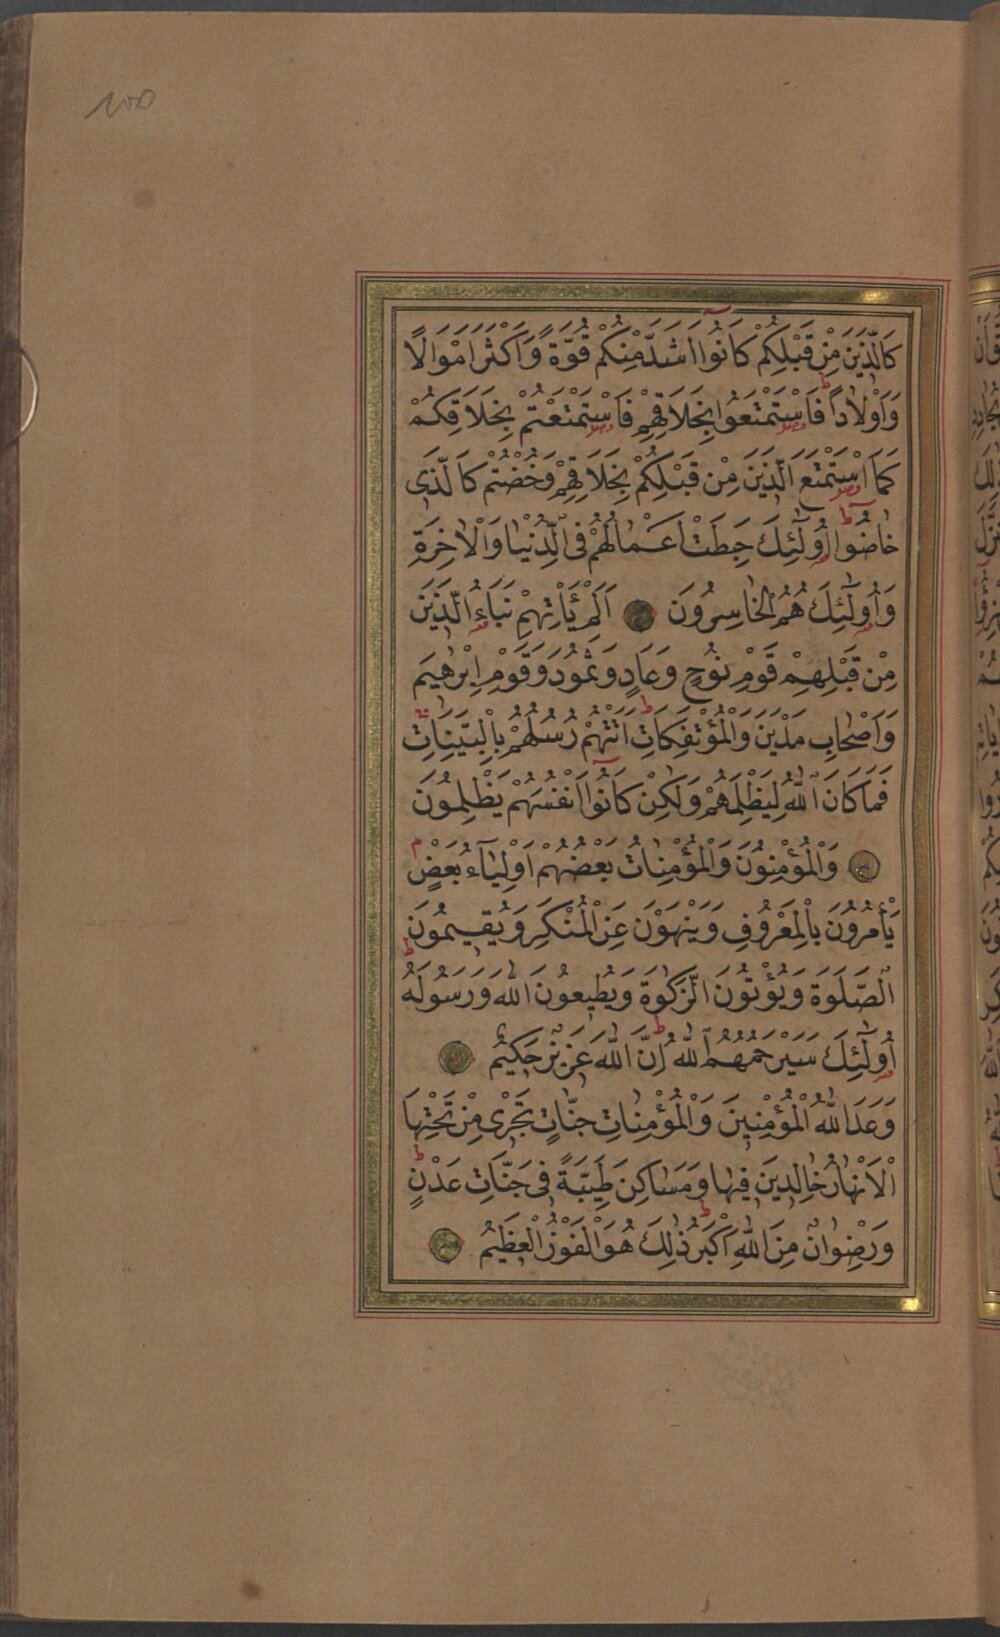 100
كَالَّذِينَ مِنْ قَبْلِكُمْ كَانُوا اَشَدَّ مِنْكُمْ قُوَّةً وَاَكْثَرَ اَمْوَالًا
وَاَوْلَادًا فَاسْتَمْتَعُوا بِخَلَاقِهِمْ فَاسْتَمْتَعْتُمْ بِخَلَاقِكُمْ
كَمَا اسْتَمْتَعَ الَّذِينَ مِنْ قَبْلِكُمْ بِخَلَاقِهِمْ وَخُضْتُمْ كَالَّذِى
خَاضُوا اُولٰٓئِكَ حَبِطَتْ اَعْمَالُهُمْ فِى الدُّنْيَا وَالْاٰخِرَةِ
وَاُولٰٓئِكَ هُمُ الْخَاسِرُونَ اَلَمْ يَأْتِهِمْ نَبَاُ الَّذِينَ
مِنْ قَبْلِهِمْ قَوْمِ نُوحٍ وَعَادٍ وَثَمُودَ وَقَوْمِ اِبْرٰهِيمَ
وَاَصْحَابِ مَدْيَنَ وَالْمُؤْتَفِكَاتِ اَتَتْهُمْ رُسُلُهُمْ بِالْبَيِّنَاتِ
فَمَا كَانَ اللّٰهُ لِيَظْلِمَهُمْ وَلٰكِنْ كَانُوا اَنْفُسَهُمْ يَظْلِمُونَ
وَالْمُؤْمِنُونَ وَالْمُؤْمِنَاتُ بَعْضُهُمْ اَوْلِيَاءُ بَعْضٍ
يَأْمُرُونَ بِالْمَعْرُوفِ وَيَنْهَوْنَ عَنِ الْمُنْكَرِ وَيُقِيمُونَ
الصَّلٰوةَ وَيُؤْتُونَ الزَّكٰوةَ وَيُطِيعُونَ اللّٰهَ وَرَسُولَهُ
اُولٰٓئِكَ سَيَرْحَمُهُمُ اللّٰهُ اِنَّ اللّٰهَ عَزِيزٌ حَكِيمٌ
وَعَدَ اللّٰهُ الْمُؤْمِنِينَ وَالْمُؤْمِنَاتِ جَنَّاتٍ تَجْرِى مِنْ تَحْتِهَا
الْاَنْهَارُ خَالِدِينَ فِيهَا وَمَسَاكِنَ طَيِّبَةً فِى جَنَّاتِ عَدْنٍ
وَرِضْوَانٌ مِنَ اللّٰهِ اَكْبَرُ ذٰلِكَ هُوَ الْفَوْزُ الْعَظِيمُ